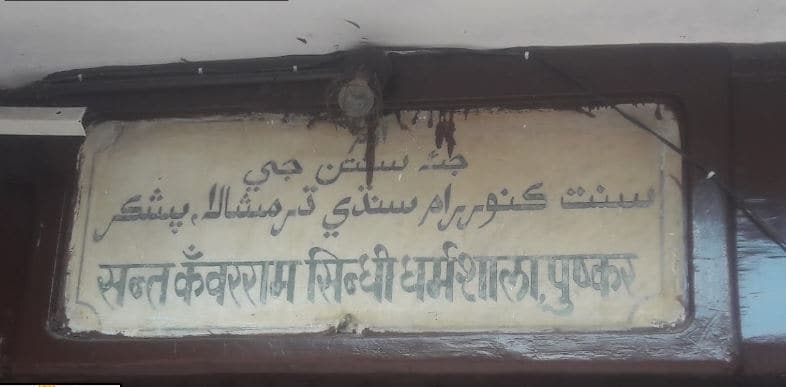 جئہ سنتن جي
سنت ڪنورام سنڌي ڌرمشالا، پشڪر
सन्त कँवरराम सिन्धी धर्मशाला, पुष्कर